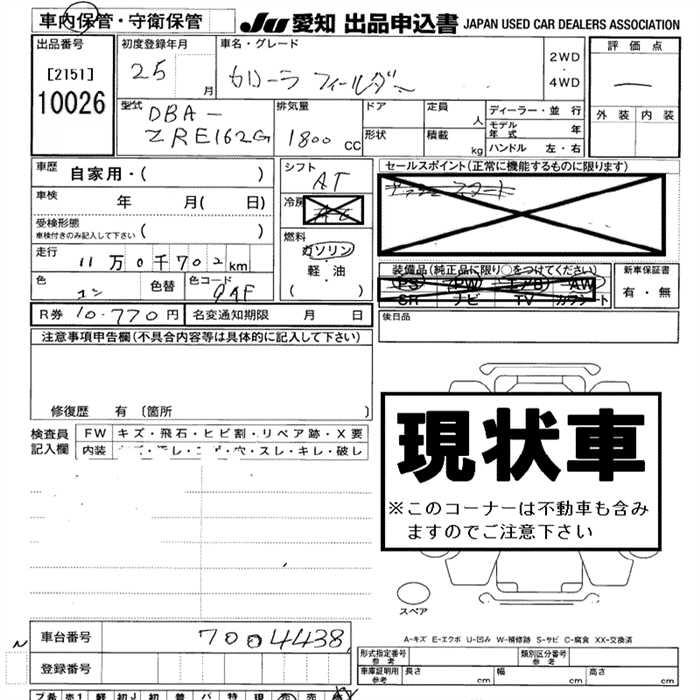 車内保管・守衛保管
JU 愛知 出品申込書 JAPAN USED CAR DEALERS ASSOCIATION
出品番号
[2151]
10026
初度登録年月
25 月
車名・グレード
カローラ フィールダー
2WD
・
4WD
評価点
外装 内装
型式
DBA-
ZRE162G
排気量
1800 cc
ドア
形状
定員 人
積載 kg
ディーラー・並行
モデル年式 年
ハンドル 左・右
車歴 自家用・( )
車検 年 月( 日)
受検形態
車検付きのみ記入して下さい ( )
走行 11万0千702km
色 コン 色替 色コード
シフト AT
冷房
燃料
ガソリン
・
軽・油
( )
セールスポイント(正常に機能するものに限ります)
プッシュスタート
装備品(純正品に限り○をつけてください)
PS PW エアB AW
SR ナビ TV カワシート
新車保証書
有・無
R券 10.770円 名変通知期限 月 日
後日品
注意事項申告欄(不具合内容等は具体的に記入して下さい)
修復歴 有〔箇所 〕
検査員
記入欄
FW キズ・飛石・ヒビ割・リペア跡・X要
内装
スレ・キレ・破レ
現状車
※このコーナーは不動車も含み
ますのでご注意下さい
スペア
A-キズ E-エクボ U-凹み W-補修跡 S-サビ C-腐食 XX-交換済
N
車台番号 7004438
登録番号
形式指定番号 参考
類別区分番号 参考
車庫証明用 参考
長さ cm 幅 cm 高さ cm